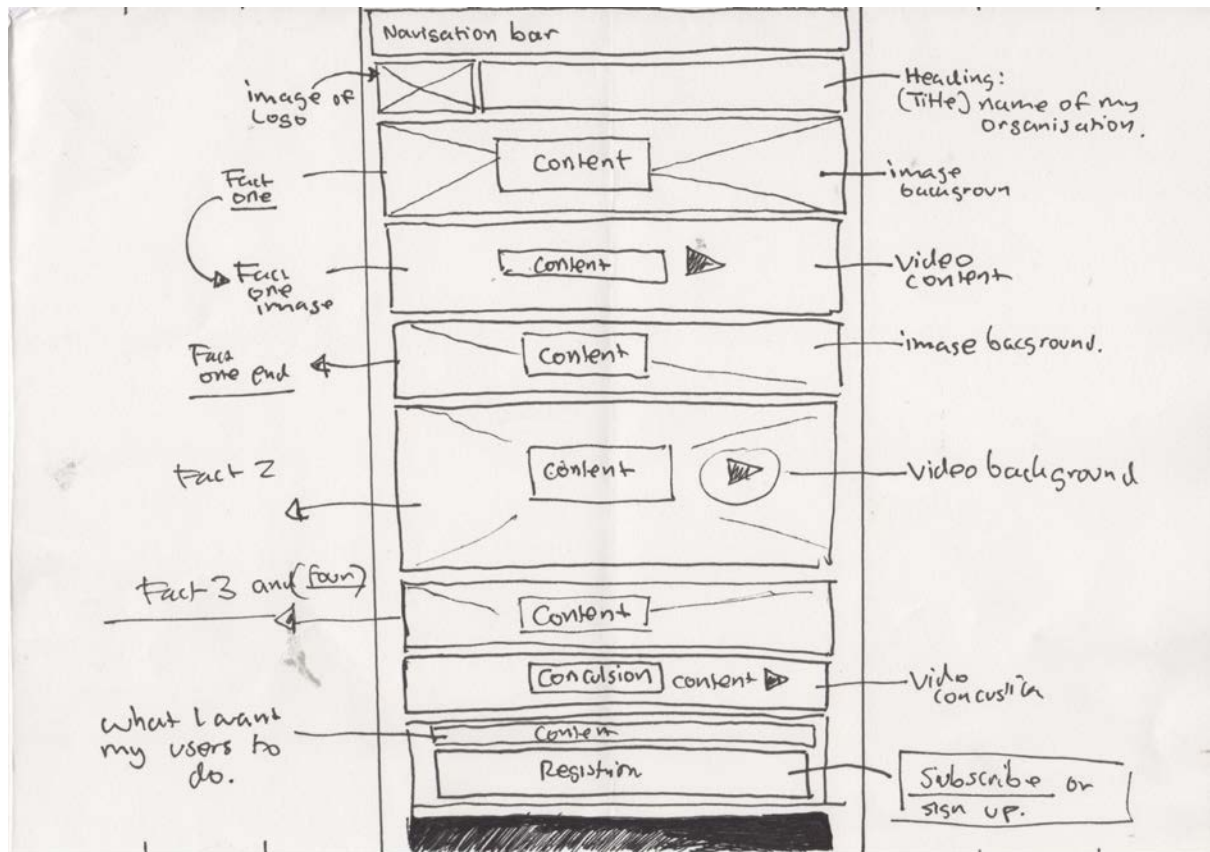 Navigation bar
image of
Logo
Heading:
(Title) name of my
organisation.
Content
Fact
one
image
backgroun
Fact
one
image
Content
Video
content
Fact
one end
Content
image bacground.
Fact 2
Content
Video background
Fact 3 and (four)
Content
Conculsion content
Video
what I want
my users to
do.
Content
Registrion
Subscribe or
sign up.